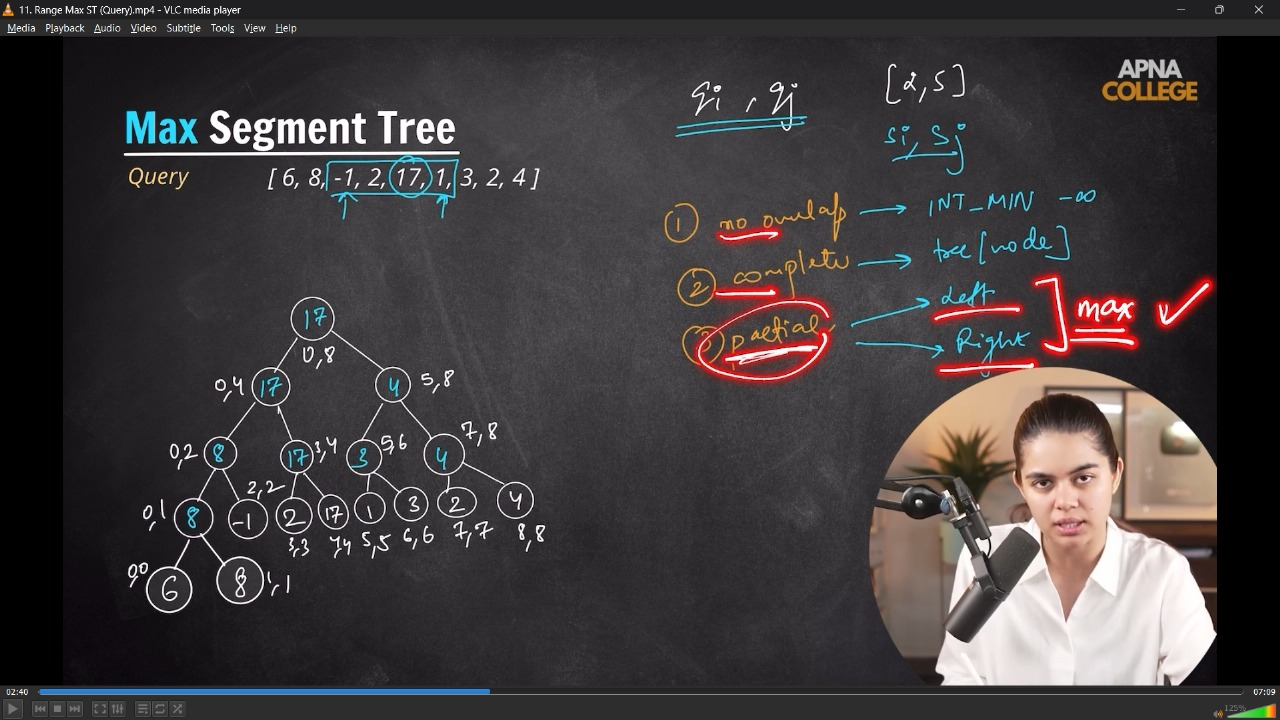 11. Range Max ST (Query).mp4 - VLC media player
Media Playback Audio Video Subtitle Tools View Help
APNA
COLLEGE
qi , qj
[2,5]
si, sj
Max Segment Tree
Query
[ 6, 8, -1, 2, 17, 1, 3, 2, 4 ]
1 no overlap → INT_MIN -∞
2 complete → tree[node]
3 partial → left
→ Right
max ✓
17
0,8
0,4 17
4 5,8
0,2 8
17 3,4
3 5,6
4 7,8
0,1 8
-1 2,2
2 17 1 3 2 4
3,3 4,4 5,5 6,6 7,7 8,8
0,0 6
8 1,1
02:40
07:09
125%